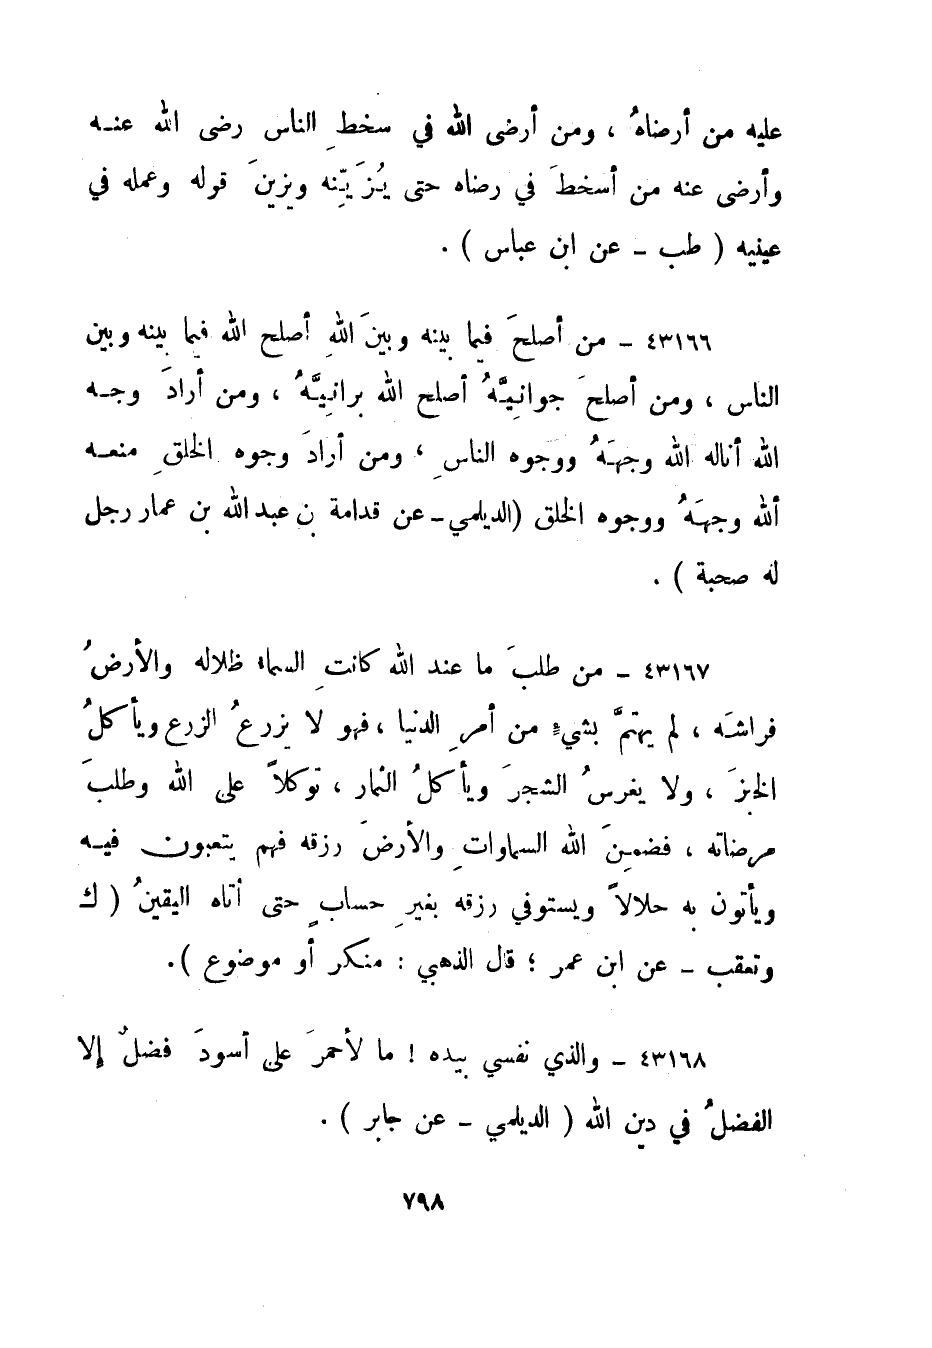 عليه من أرضاهُ ، ومن أرضى الله في سخطِ الناس رضى الله عنـه
وأرضى عنه من أسخطَ في رضاه حتى يُزَيِّنه ويزينَ قوله وعمله في
عينيه ( طب ـ عن ابن عباس ) .
٤٣١٦٦ ـ من أصلحَ فيما بينه وبينَ اللهِ أصلح الله فيما بينه وبين
الناس ، ومن أصلحَ جوانِيَّهُ أصلح الله برانِيَّهُ ، ومن أرادَ وجـه
الله أناله الله وجهَهُ ووجوه الناسِ ، ومن أرادَ وجوه الخلقِ منعـه
ألله وجهَهُ ووجوه الخلق (الديلمي ـ عن قدامة بن عبد الله بن عمار رجل
له صحبة ) .
٤٣١٦٧ ـ من طلبَ ما عند الله كانتِ السماء ظلاله والأرضُ
فراشَه ، لم يهتمَّ بشيءٍ من أمرِ الدنيا ، فهو لا يزرعُ الزرع ويأكلُ
الخبزَ ، ولا يغرسُ الشجرَ ويأكلُ الثمار ، توكلاً على الله وطلبَ
مرضاته ، فضمِنَ الله السماواتِ والأرضَ رزقه فهم يتعبون فيـه
ويأتون به حلالاً ويستوفي رزقه بغيرِ حسابٍ حتى أتاه اليقينُ ( ك
وتعقب ـ عن ابن عمر ؛ قال الذهبي : منكر أو موضوع ).
٤٣١٦٨ ـ والذي نفسي بيده ! ما لأحمرَ على أسودَ فضلٌ إلا
الفضلُ في دين الله ( الديلمي ـ عن جابر ) .
٧٩٨